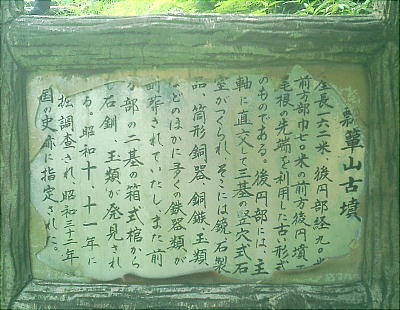 瓢箪山古墳
全長一六二米、後円部経九〇米
前方部巾七〇米の前方後円墳で
尾根の先端を利用した古い形式
のものである。後円部には、主
軸に直交して三基の竪穴式石
室がつくられ、そこには鏡、石製
品、筒形銅器、銅鏃、玉類
などのほかに多くの鉄器類が
副葬されていたし、また前
方部の二基の箱式棺から
も石釧、玉類が発見され
る。昭和十、十一年に
発掘調査され、昭和三十二年
国の史跡に指定された。